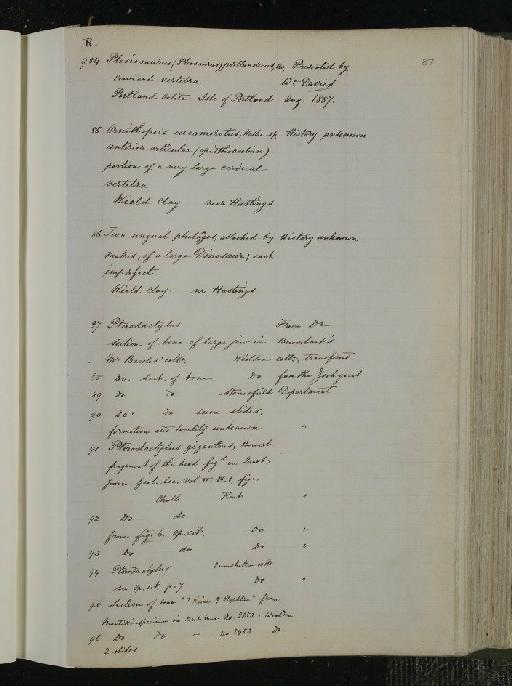 R.
87
984 Plesiosaurus, portlandicus, Presented by
cervical vertebra Wm Davies
Portland Oolite Isle of Portland Aug. 1887.
85 Ornithopsis eucamerotus, Hulke sp. History unknown
anterior articular (opisthocoelian)
portion of a very large cervical
vertebra
Weald Clay near Hastings
86 Two ungual phalanges, attached by History unknown
matrix, of a large Dinosaur; each
imperfect
Weald Clay nr Hastings
87 Pterodactylus From Dr
section of bone of large jaw in Bowerbank's
Mr Beccles' colln. Wealden colln, transferred
88 Do. sect. of bone Do from the Zoological
89 Do Do Stonesfield Department
90 Do. Do seven slides, "
formation and locality unknown
91 Pterodactylus giganteus, Bowerb.
fragment of the head fig'd in Quart.
Journ Geol. Soc. vol IV. Pl.1. fig.
Chalk Kent "
92 Do do
from fig. 6. op. cit. Do "
93 Do do Do "
94 Pterodactylus
in op. cit. p. 7 Do "
95 Section of bone of from
Mantell's specimen in no. 2353. Wealden
96 Do Do " no 2953 Do
2 slides